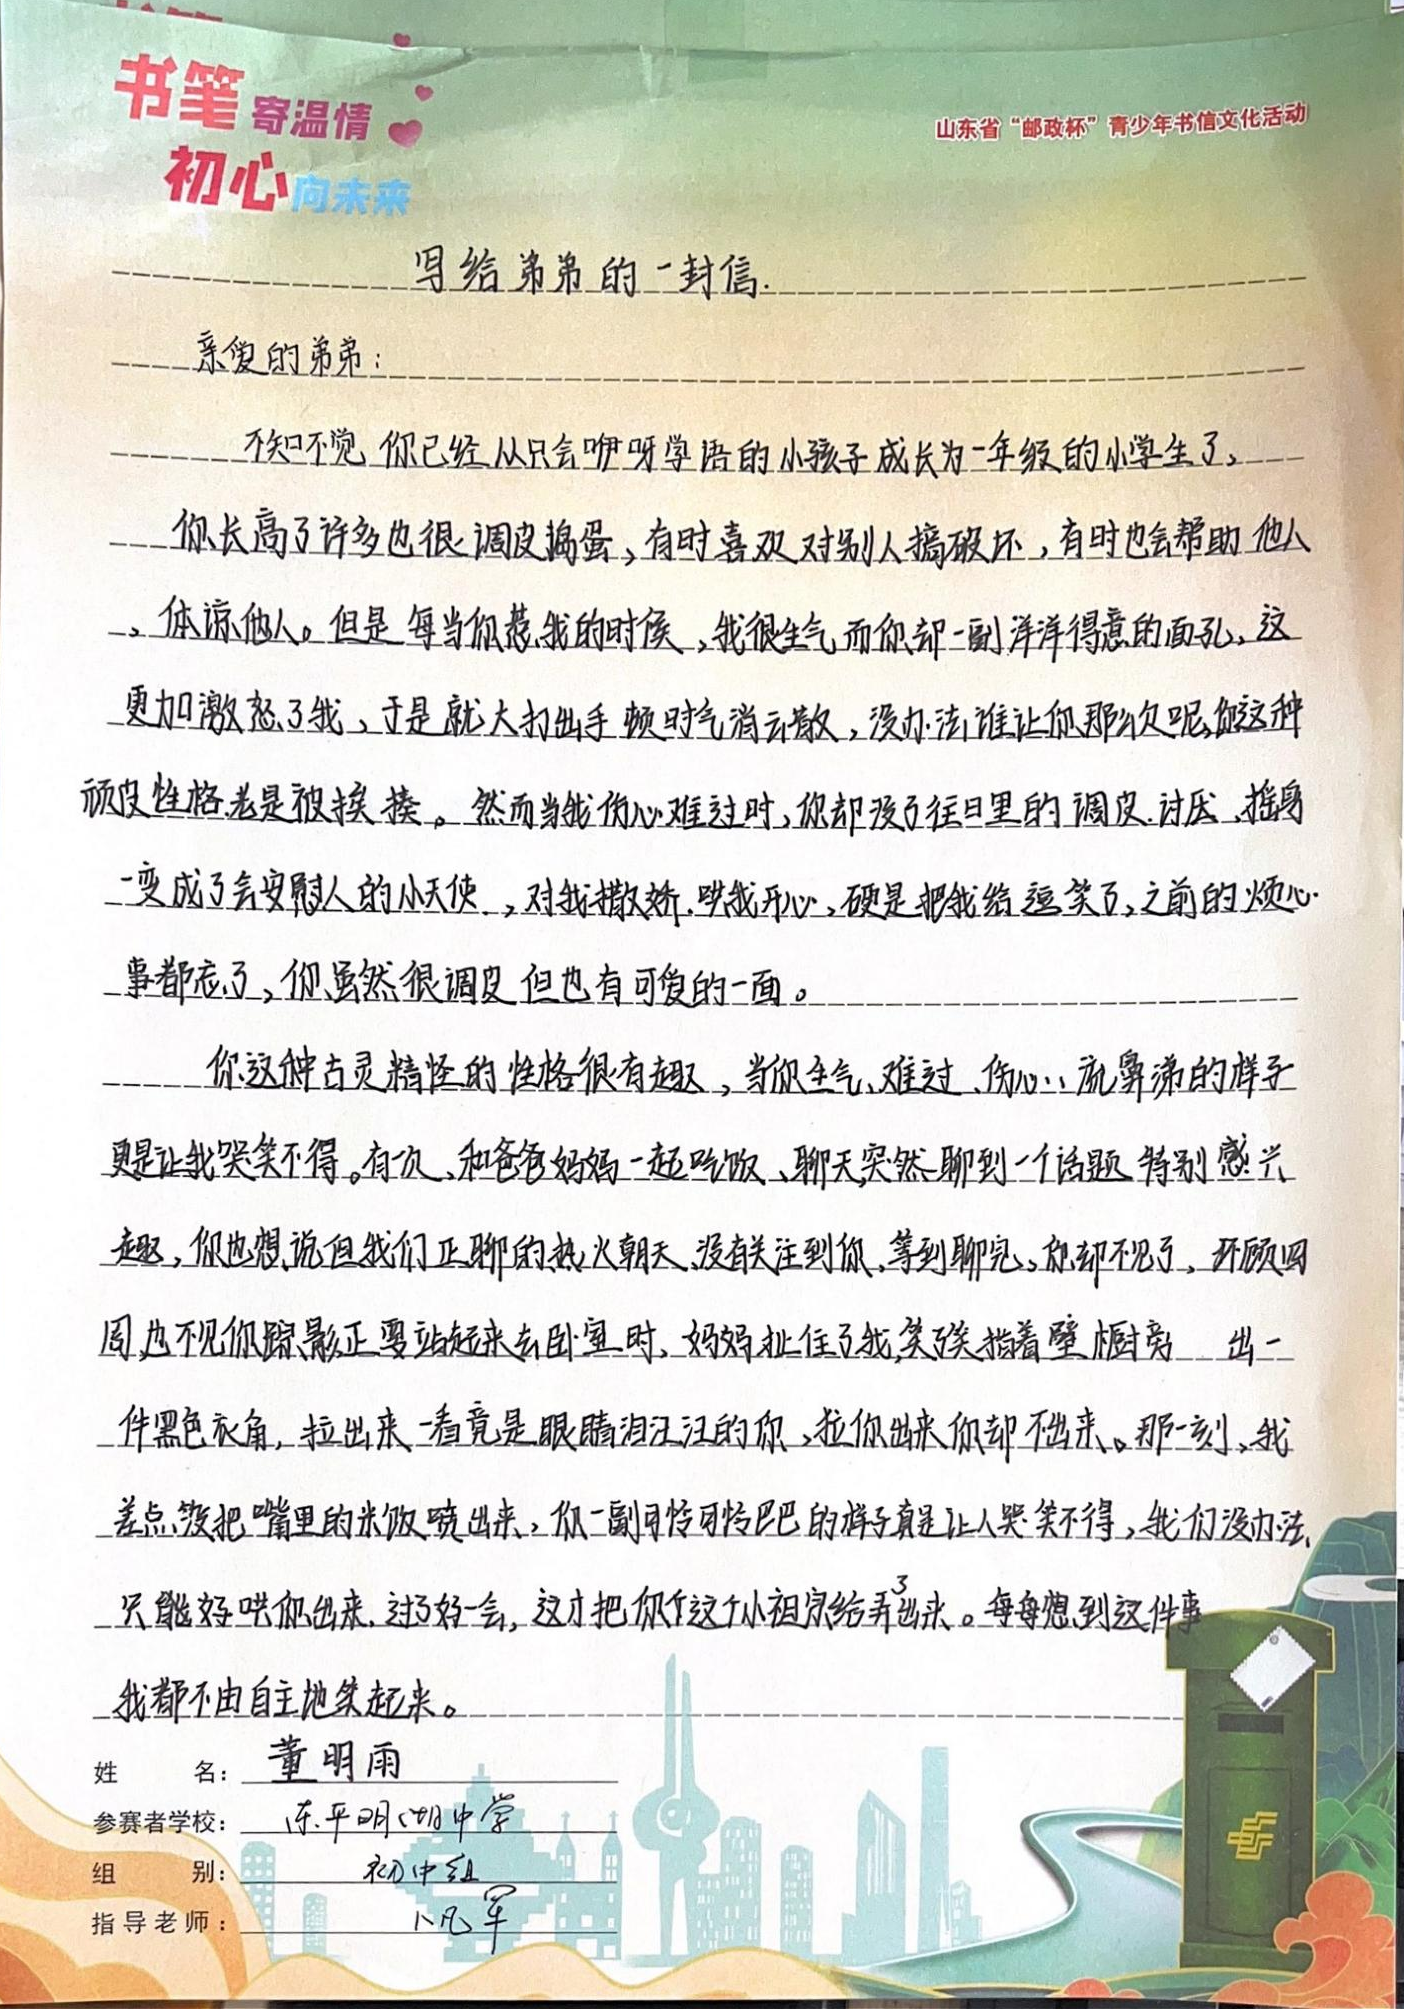 书笔寄温情
初心向未来
山东省“邮政杯”青少年书信文化活动
写给弟弟的一封信.
亲爱的弟弟：
不知不觉 你已经从只会咿呀学语的小孩子成长为一年级的小学生了，
你长高了许多也很调皮捣蛋，有时喜欢对别人搞破坏，有时也会帮助他人
、体谅他人。但是每当你惹我的时候，我很生气而你却一副洋洋得意的面孔，这
更加激怒了我，于是就大打出手顿时气消云散，没办法谁让你那么欠呢，你这种
顽皮性格老是被挨揍。然而当我伤心难过时，你却没了往日里的调皮.讨厌，摇身
一变成了会安慰人的小天使，对我撒娇.哄我开心，硬是把我给逗笑了，之前的烦心
事都忘了，你虽然很调皮但也有可爱的一面。
你这种古灵精怪的性格很有趣，当你生气、难过、伤心流鼻涕的样子
更是让我哭笑不得。有一次、和爸爸妈妈一起吃饭、聊天突然聊到一个话题特别感兴
趣，你也想说但我们正聊的热火朝天、没有关注到你、等到聊完，你却不见了，环顾四
周也不见你踪影正要站起来去卧室时，妈妈扯住了我，笑了笑指着壁橱旁 出一
件黑色衣角，拉出来一看竟是眼睛泪汪汪的你，拉你出来你却不出来。那一刻，我
差点没把嘴里的米饭喷出来，你一副可怜可怜巴巴的样子真是让人哭笑不得，我们没办法，
只能好哄你出来.过了好一会，这才把你个这个小祖宗给弄了出来。每每想到这件事
我都不由自主地笑起来。
姓 名：董明雨
参赛者学校：东平明湖中学
组 别：初中组
指导老师：卜凡军